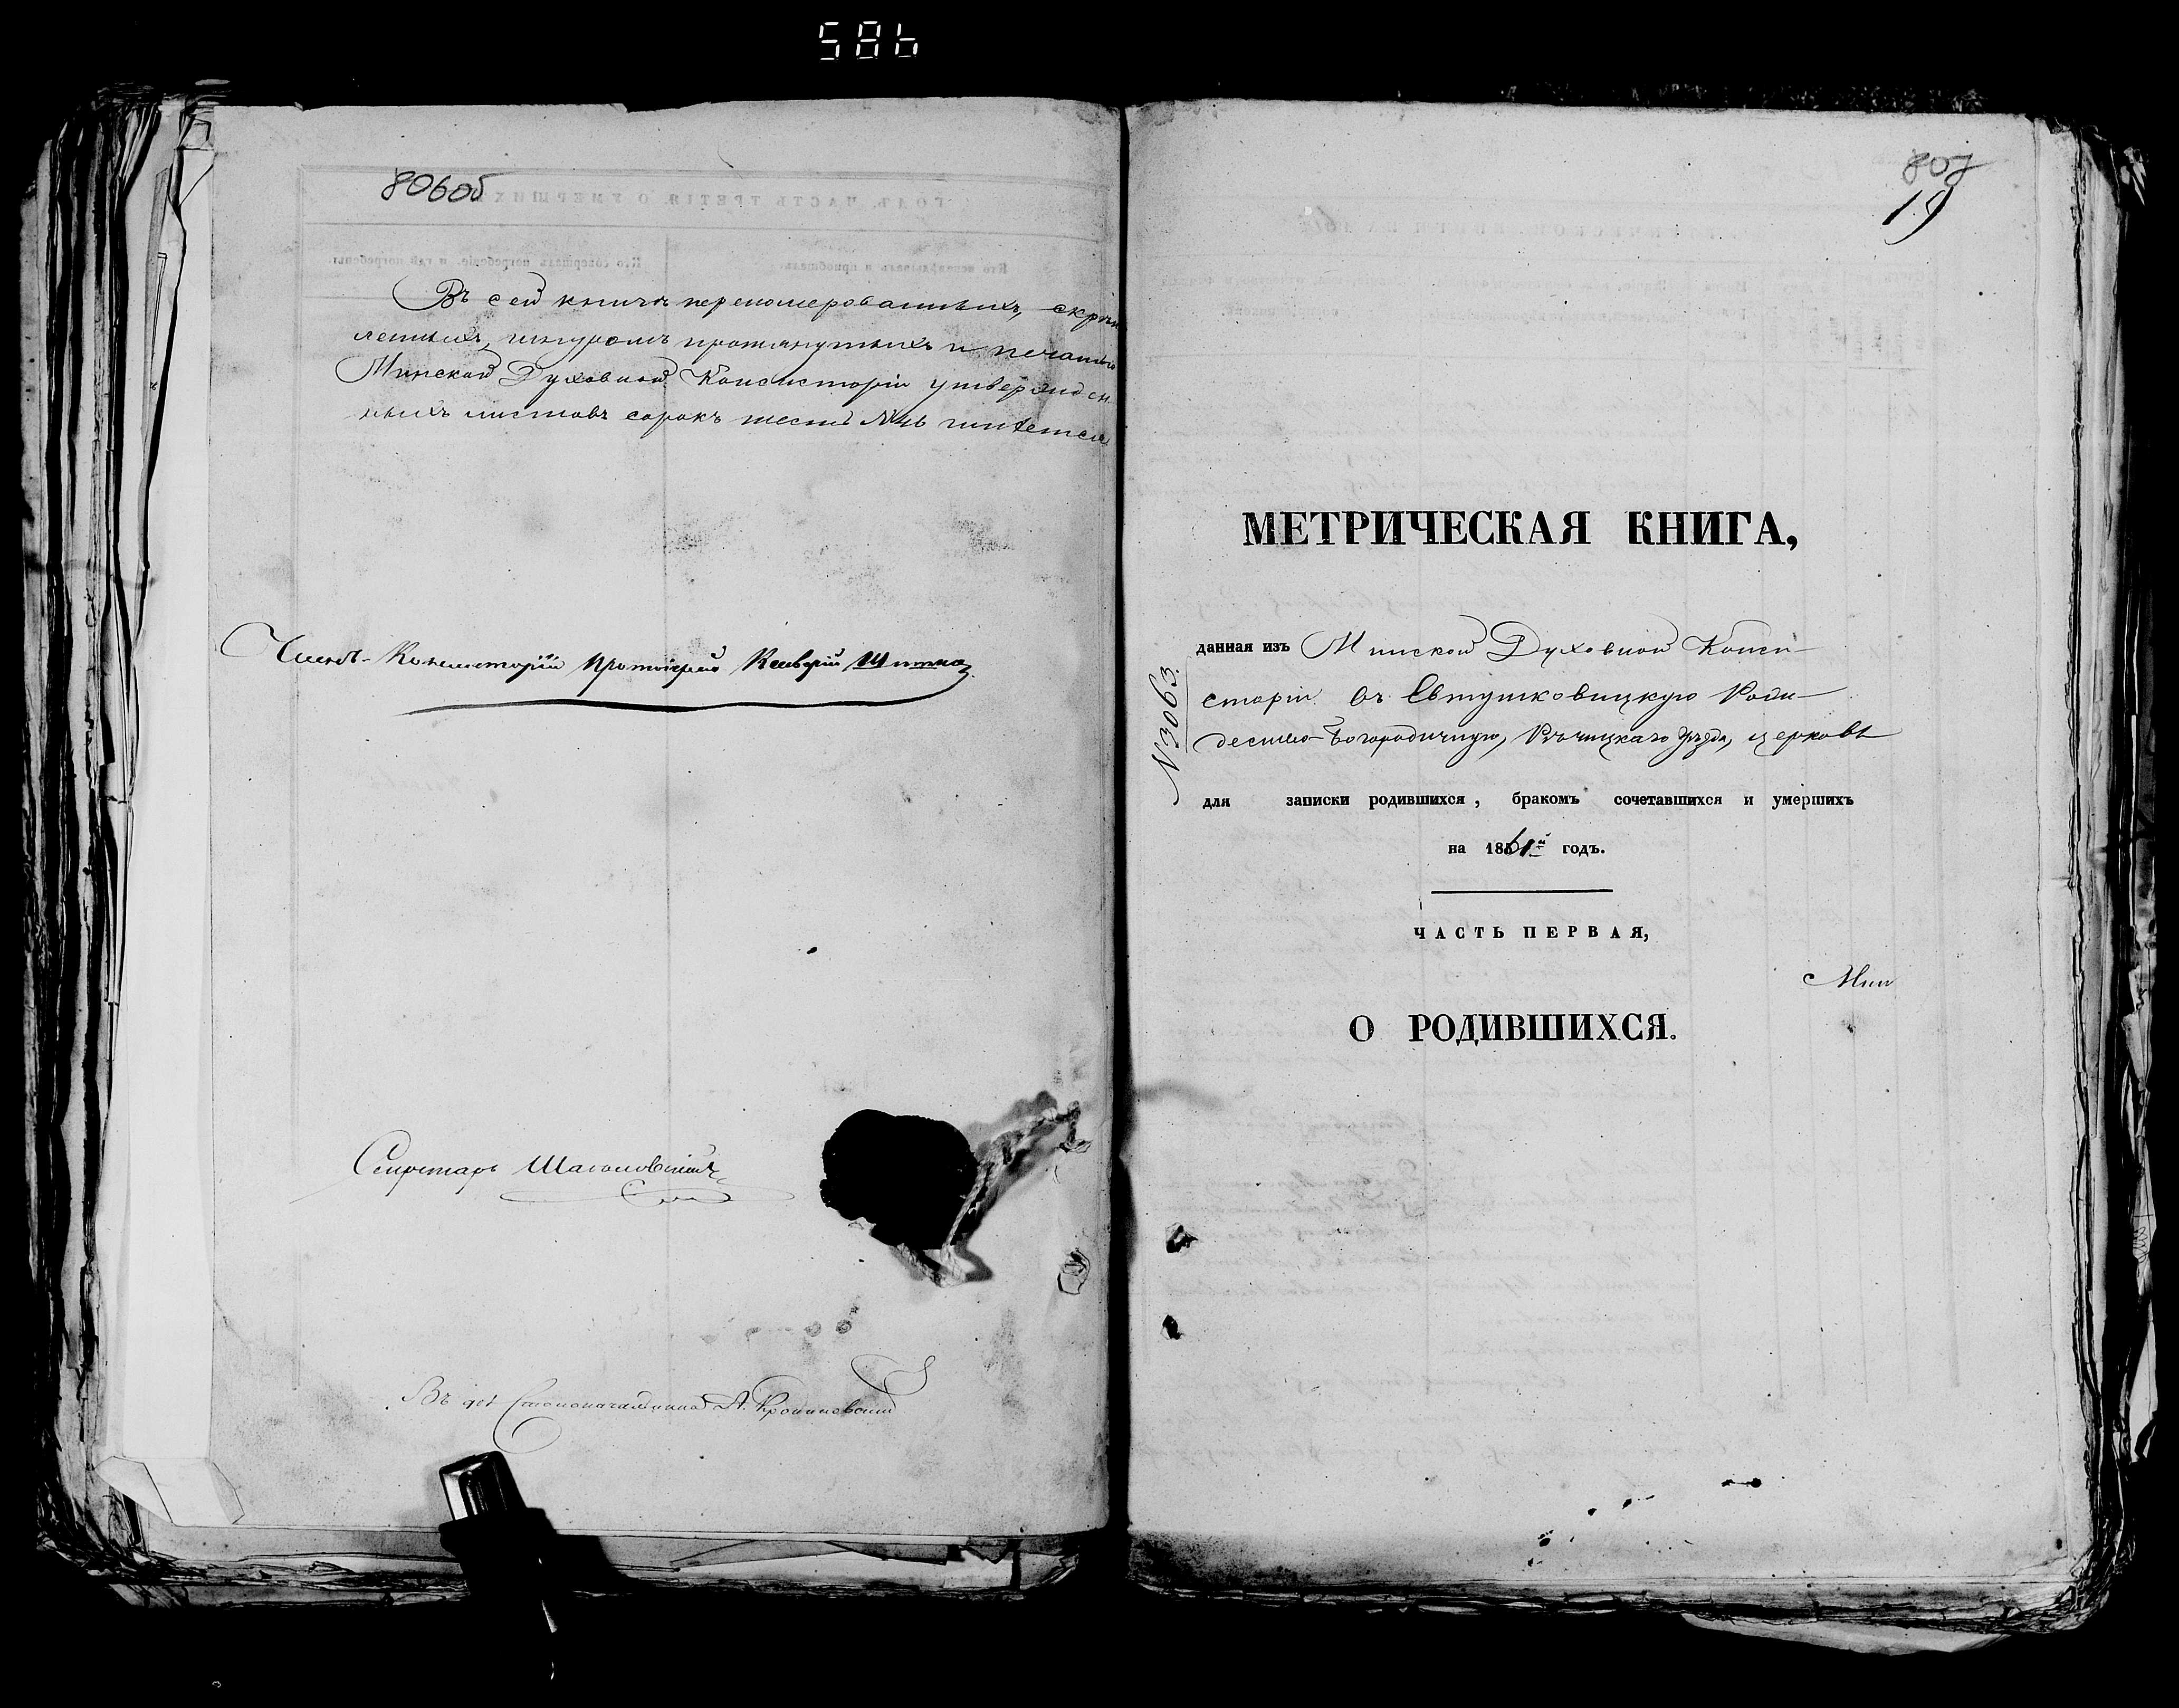 586
806об
Въ сей книгѣ перенумерованныхъ, скрѣп
ленныхъ, шнуромъ протянутыхъ и печатью
Минской Духовной Консисторіи утвержден
ныхъ листовъ сорокъ шесть №46 числится
Членъ Консисторіи Протоіерей
Секретарь
Въ дол. Столоначальника А.
807
19
МЕТРИЧЕСКАЯ КНИГА,
№3063.
данная изъ Минской Духовной Конси-
сторіи въ Евтушковицкую Рож-
дество-Богородичную, Рѣчицкаго уѣзда, церковь
для записки родившихся, бракомъ сочетавшихся и умершихъ
на 1861й годъ.
ЧАСТЬ ПЕРВАЯ,
Мин
О РОДИВШИХСЯ.